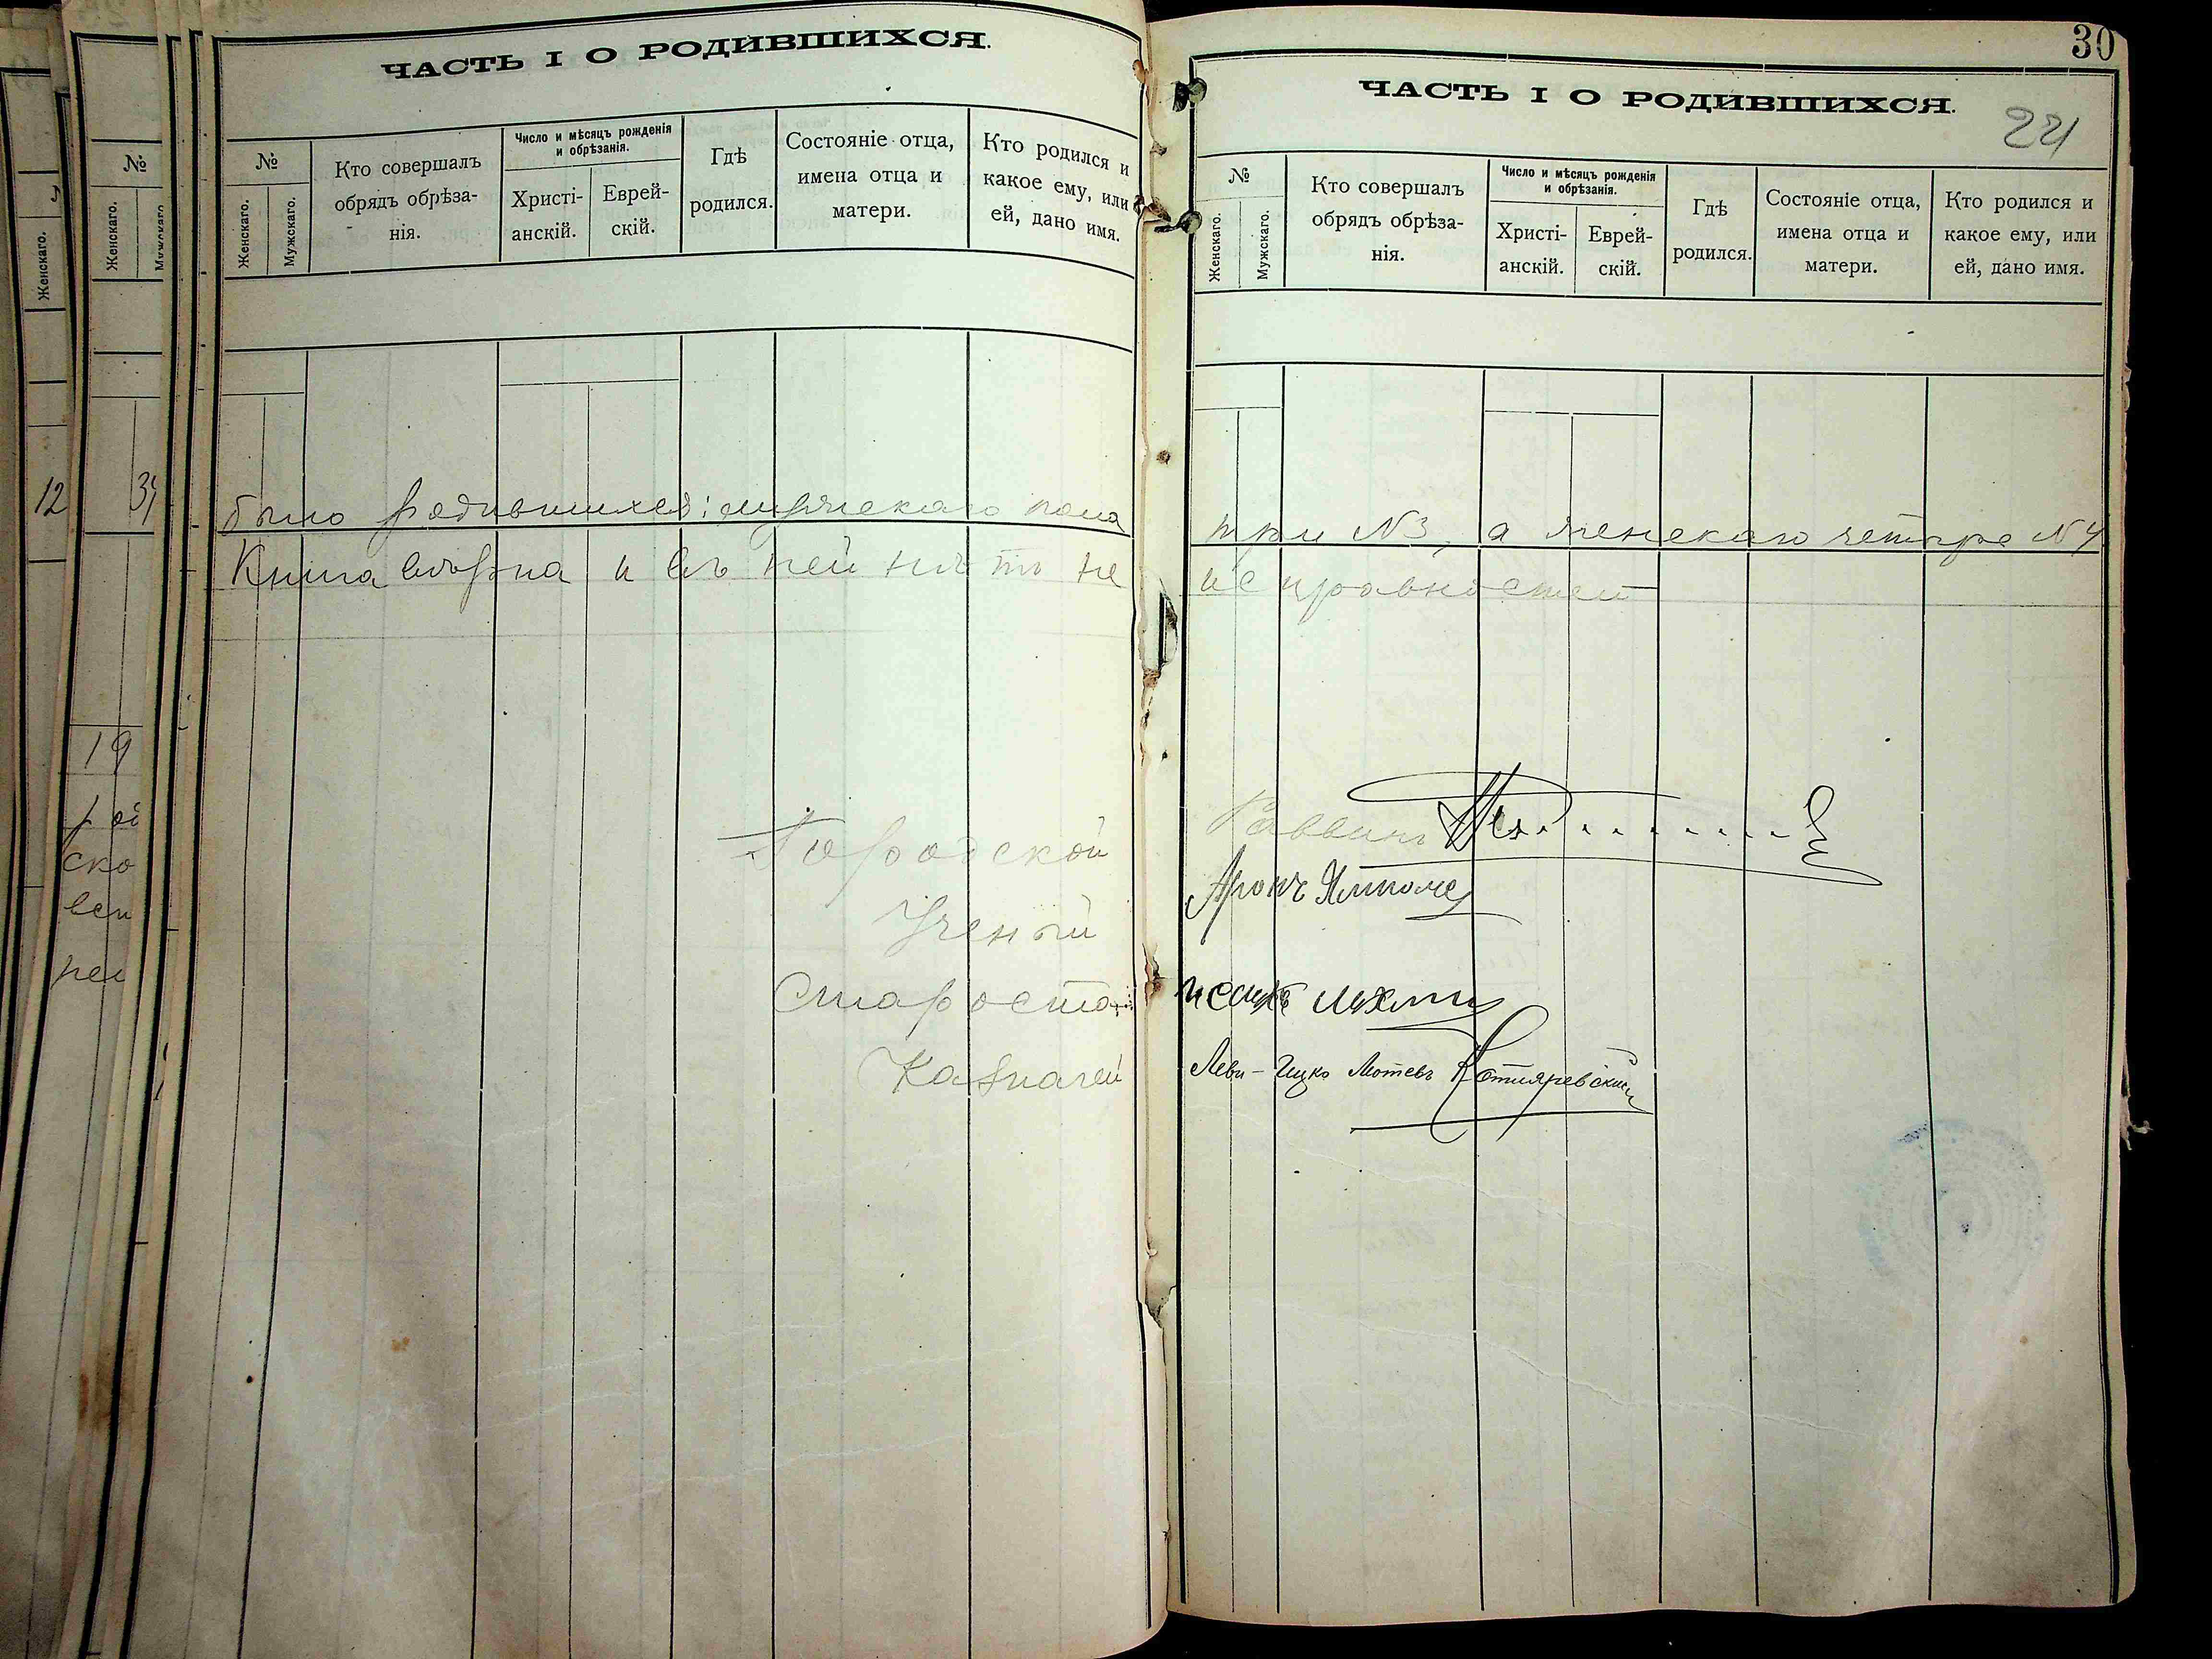 ЧАСТЬ I О РОДИВШИХСЯ.
№
Женскаго.
Мужскаго.
Кто совершалъ
обрядъ обрѣза-
нія.
Число и мѣсяцъ рожденія
и обрѣзанія.
Христі-
анскій.
Еврей-
скій.
Гдѣ
родился.
Состояніе отца,
имена отца и
матери.
Кто родился и
какое ему, или
ей, дано имя.
было родившихся: мужескаго пола
Книга верна и въ ней нѣтъ не
Городской
Ученый
Староста
Казначей
30
ЧАСТЬ I О РОДИВШИХСЯ.
№
Женскаго.
Мужскаго.
Кто совершалъ
обрядъ обрѣза-
нія.
Число и мѣсяцъ рожденія
и обрѣзанія.
Христі-
анскій.
Еврей-
скій.
Гдѣ
родился.
Состояніе отца,
имена отца и
матери.
Кто родился и
какое ему, или
ей, дано имя.
три N3, а женскаго четыре N4
исправностей
Раввинъ
Аронъ
Леви-Ицко Мотевъ Котляревскій
№
Женскаго.
Мужскаго
Женскаго.
12
19
ско